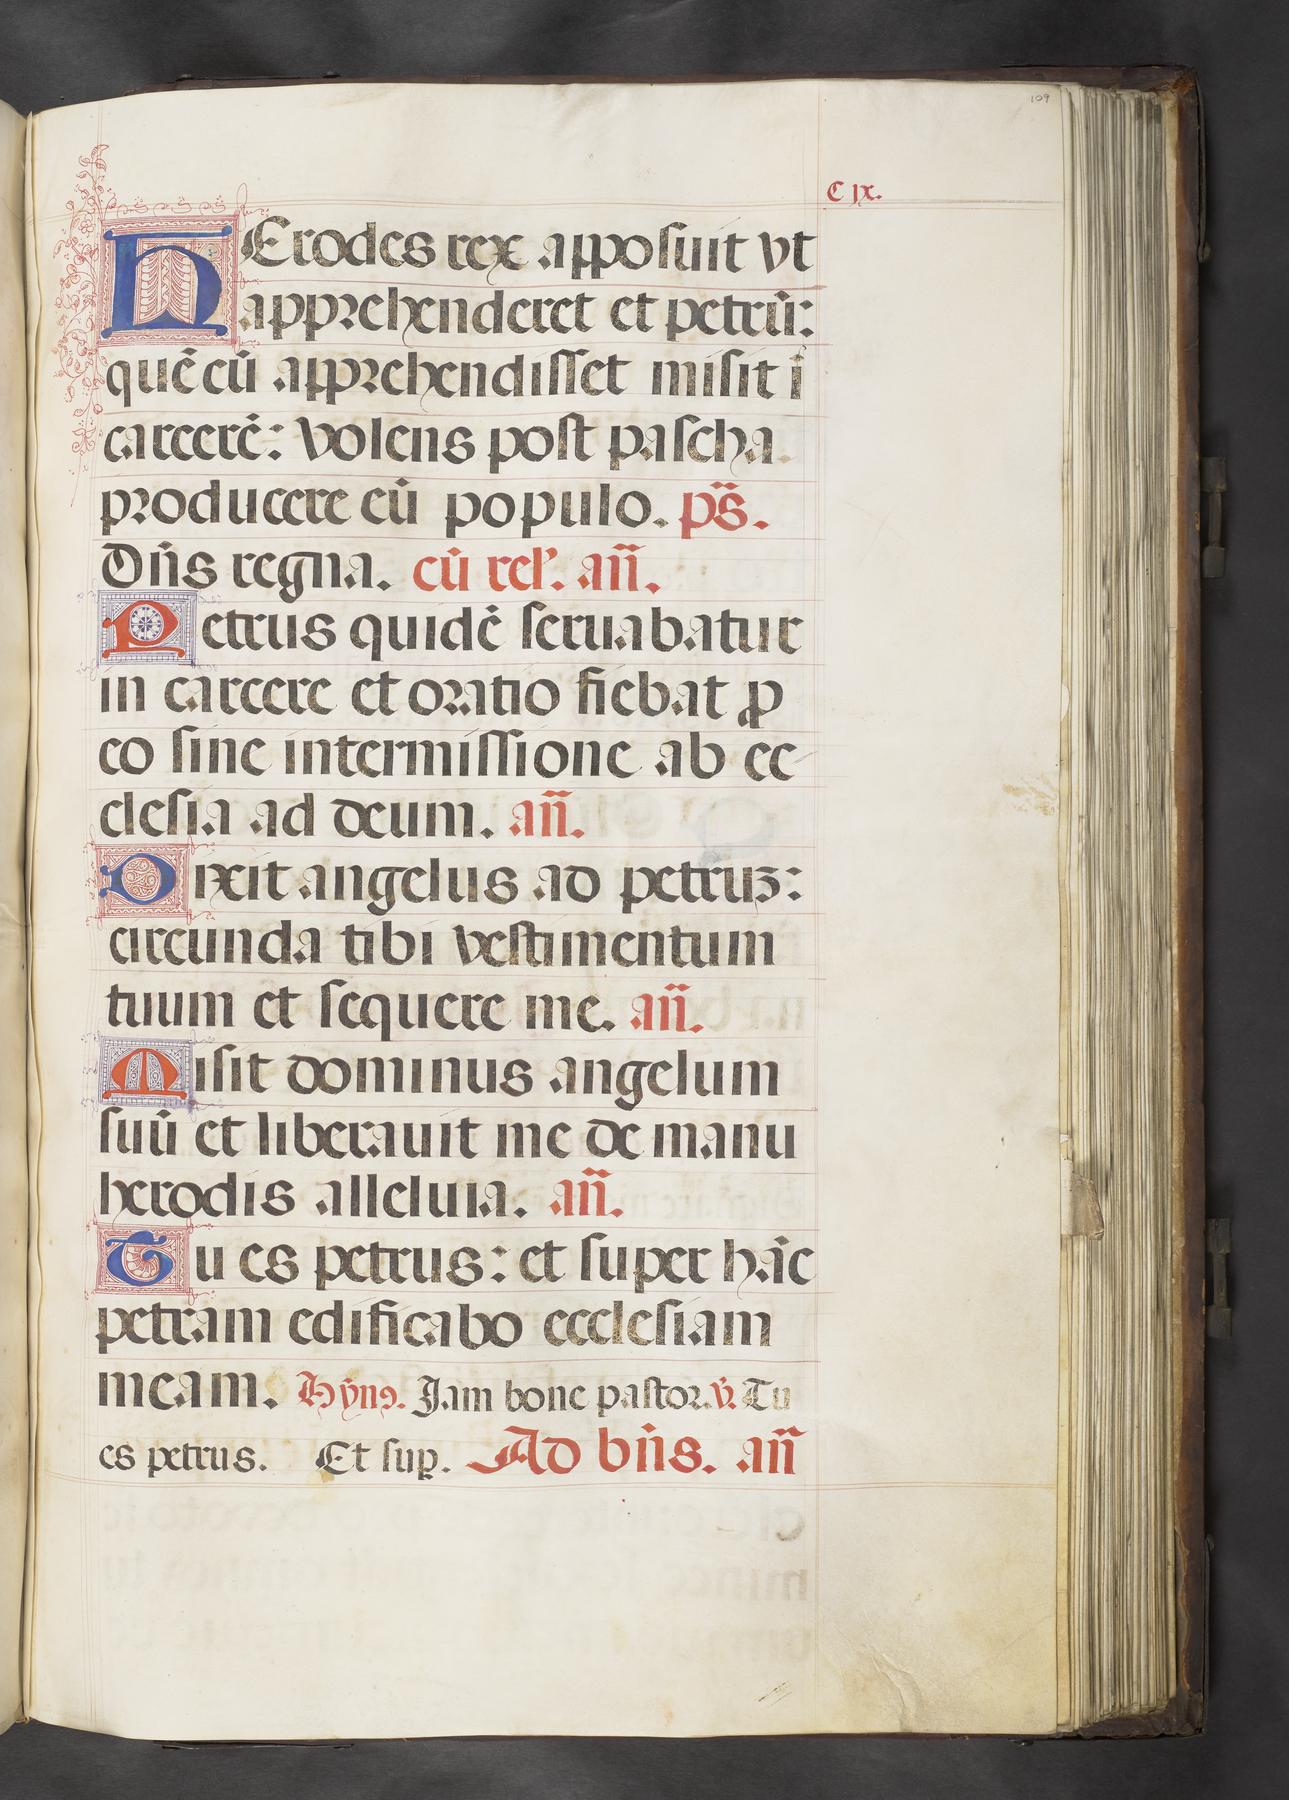 109
C ix.
HErodes rex apposuit vt
apprehenderet et petrū:
quē cū apprehendisset misit ī
carcerē: volens post pascha
producere eū populo. ps̄.
Dn̄s regna. cū rel'. an̄.
Petrus quidē seruabatur
in carcere et oratio fiebat ꝓ
eo sine intermissione ab ec
clesia ad deum. an̄.
Dixit angelus ad petruꝫ:
circunda tibi vestimentum
tuum et sequere me. an̄.
Misit dominus angelum
suū et liberauit me de manu
herodis alleluia. an̄.
Tu es petrus: et super hāc
petram edificabo ecclesiam
meam. Hȳnꝰ. Jam bone pastor. v̄. Tu
es petrus. Et suꝑ. Ad bn̄s. an̄